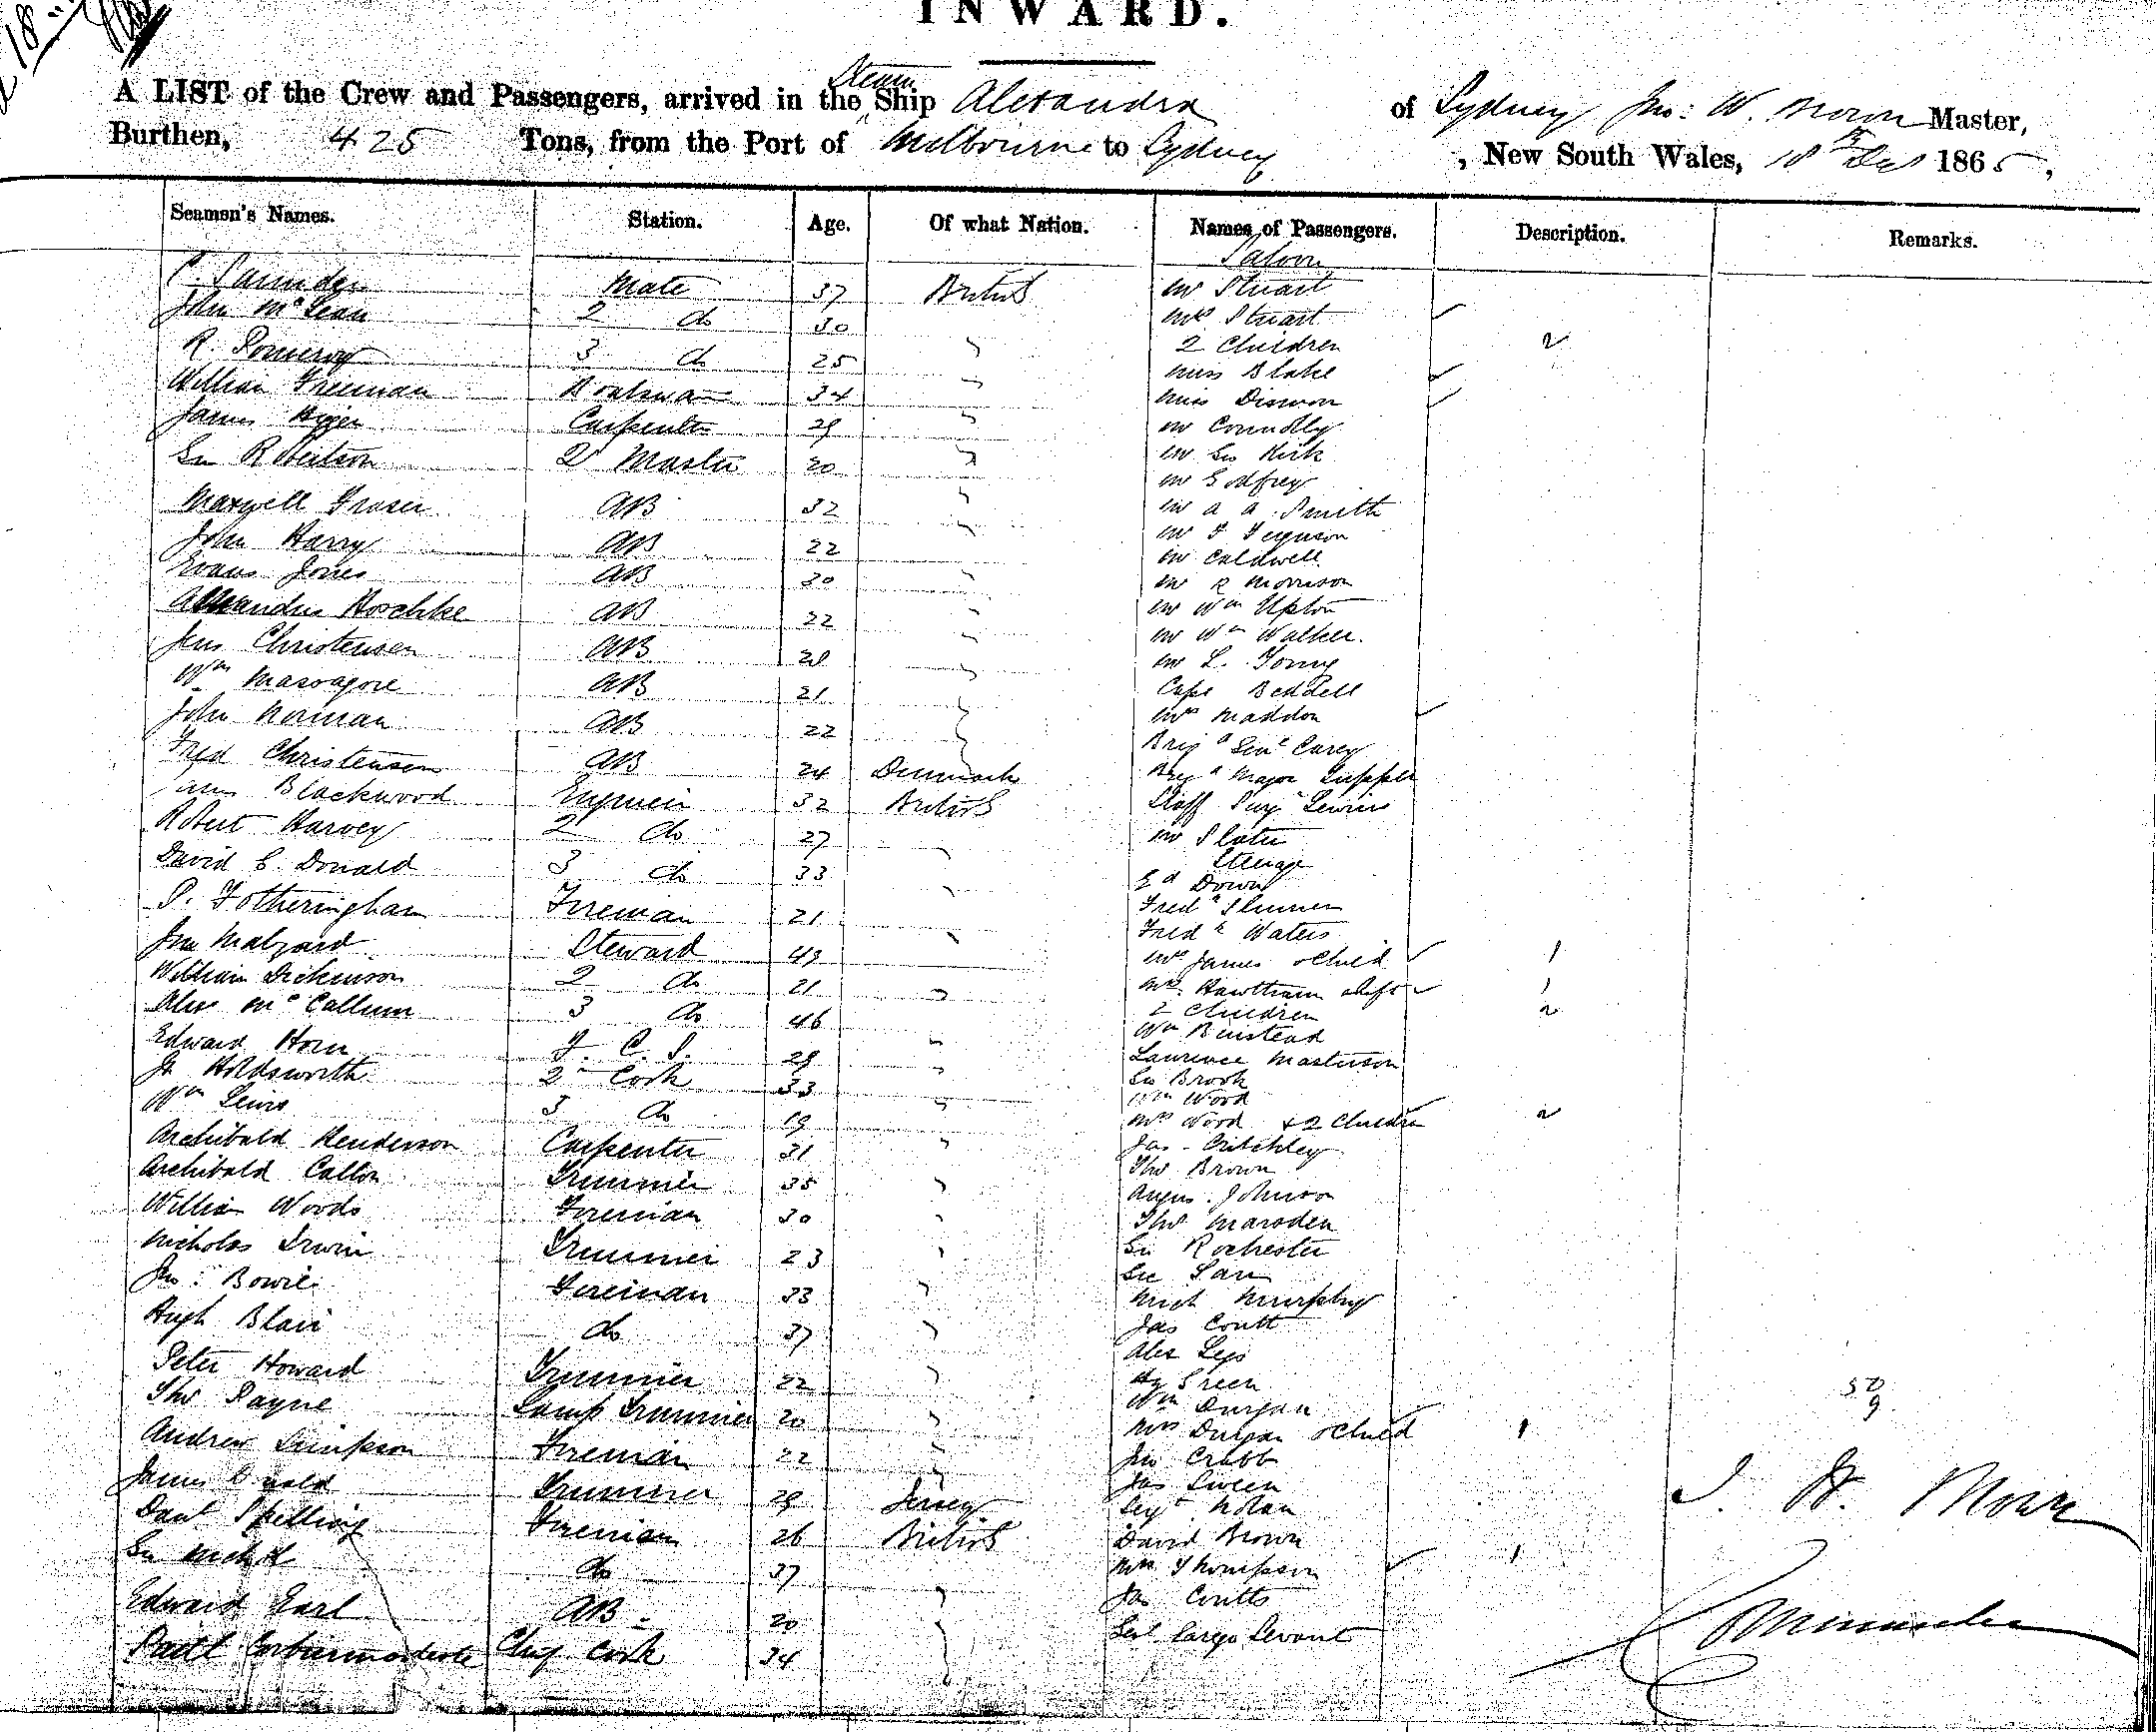 INWARD.
A LIST of the Crew and Passengers, arrived in the Steam Ship Alexandra of Sydney Jno: W. Master,
Burthen, 425 Tons, from the Port of Melbourne to Sydney, New South Wales, 18th Dec 1865,
Seamen's Names. Station. Age. Of what Nation. Names of Passengers. Description. Remarks.
Saloon
Mate 37 British Mr Stuart
John McLean 2 do 30 " Mrs Stuart
R. Pomeroy 3 do 25 " 2 Children 2
William Freeman Boatswain 34 " Miss Blake
James Carpenter 29 " Miss
Geo Robertson 2r Master 20 " Mr Connolly
Mr Geo Kirk
Mr Godfrey
Maxwell Fraser AB 32 " Mr A A Smith
John Harry AB 22 " Mr F Ferguson
Evans Jones AB 30 " Mr Caldwell
Mr R Morrison
Alexander Hoschke AB 22 " Mr Wm Upton
Jens Christensen AB 28 " Mr Wm Walker
Wm AB 21 " Mr L. Young
Capt Beddell
John Norman AB 22 " Mrs Maddon
Fred Christensen AB 24 Denmark Brigr Genl Carey
James Blackwood Engineer 32 British Brigd Major
Staff Surgn
Robert Harvey 2 do 27 " Mr Slater
Steerage
David C. Donald 3 do 33 " Ed Down
P. Fotheringham Fireman 21 " Fredk
Fredk Waters
Jno Malzard Steward 43 " Mrs James & Child 1
William Dickenson 2 do 21 " Mrs 1
Alex McCallum 3 do 46 " 2 Children 2
Edward Horn F. C. S. 29 " Wm Binstead
Laurence Masterson
Jr Holdsworth 2nd Cook 33 " Geo Brook
Wm Lewis 3 do 19 " Wm Wood
Mrs Wood & 2 Children 2
Archibald Henderson Carpenter 31 " Jas Critchley
Archibald Calton Trimmer 35 " Thos Brown
William Woods Fireman 30 " Angus Johnson
Thos Marsden
Nicholas Irwin Trimmer 23 " Geo Rochester
Jno: Bowie Fireman 33 " Geo
Mich Murphy
Hugh Blair do 37 " Jas Coutt
Alex
Peter Howard Trimmer 22 " Hy Green
Thos Payne Lamp Trimmer 20 " Wm Durgan
Mrs Durgan & Child 1
Andrew Simpson Fireman 22 " Jno Crabb
James Trimmer 29 Jersey Jas Sween
Sergt Nolan
Danl Spelling Fireman 26 British David Brown
Geo Nichol do 37 " Mrs Thompson 1
Jas Coutts
Edward Earl AB 20 " Genl Careys Servant
Chief Cook 34 "
50
9